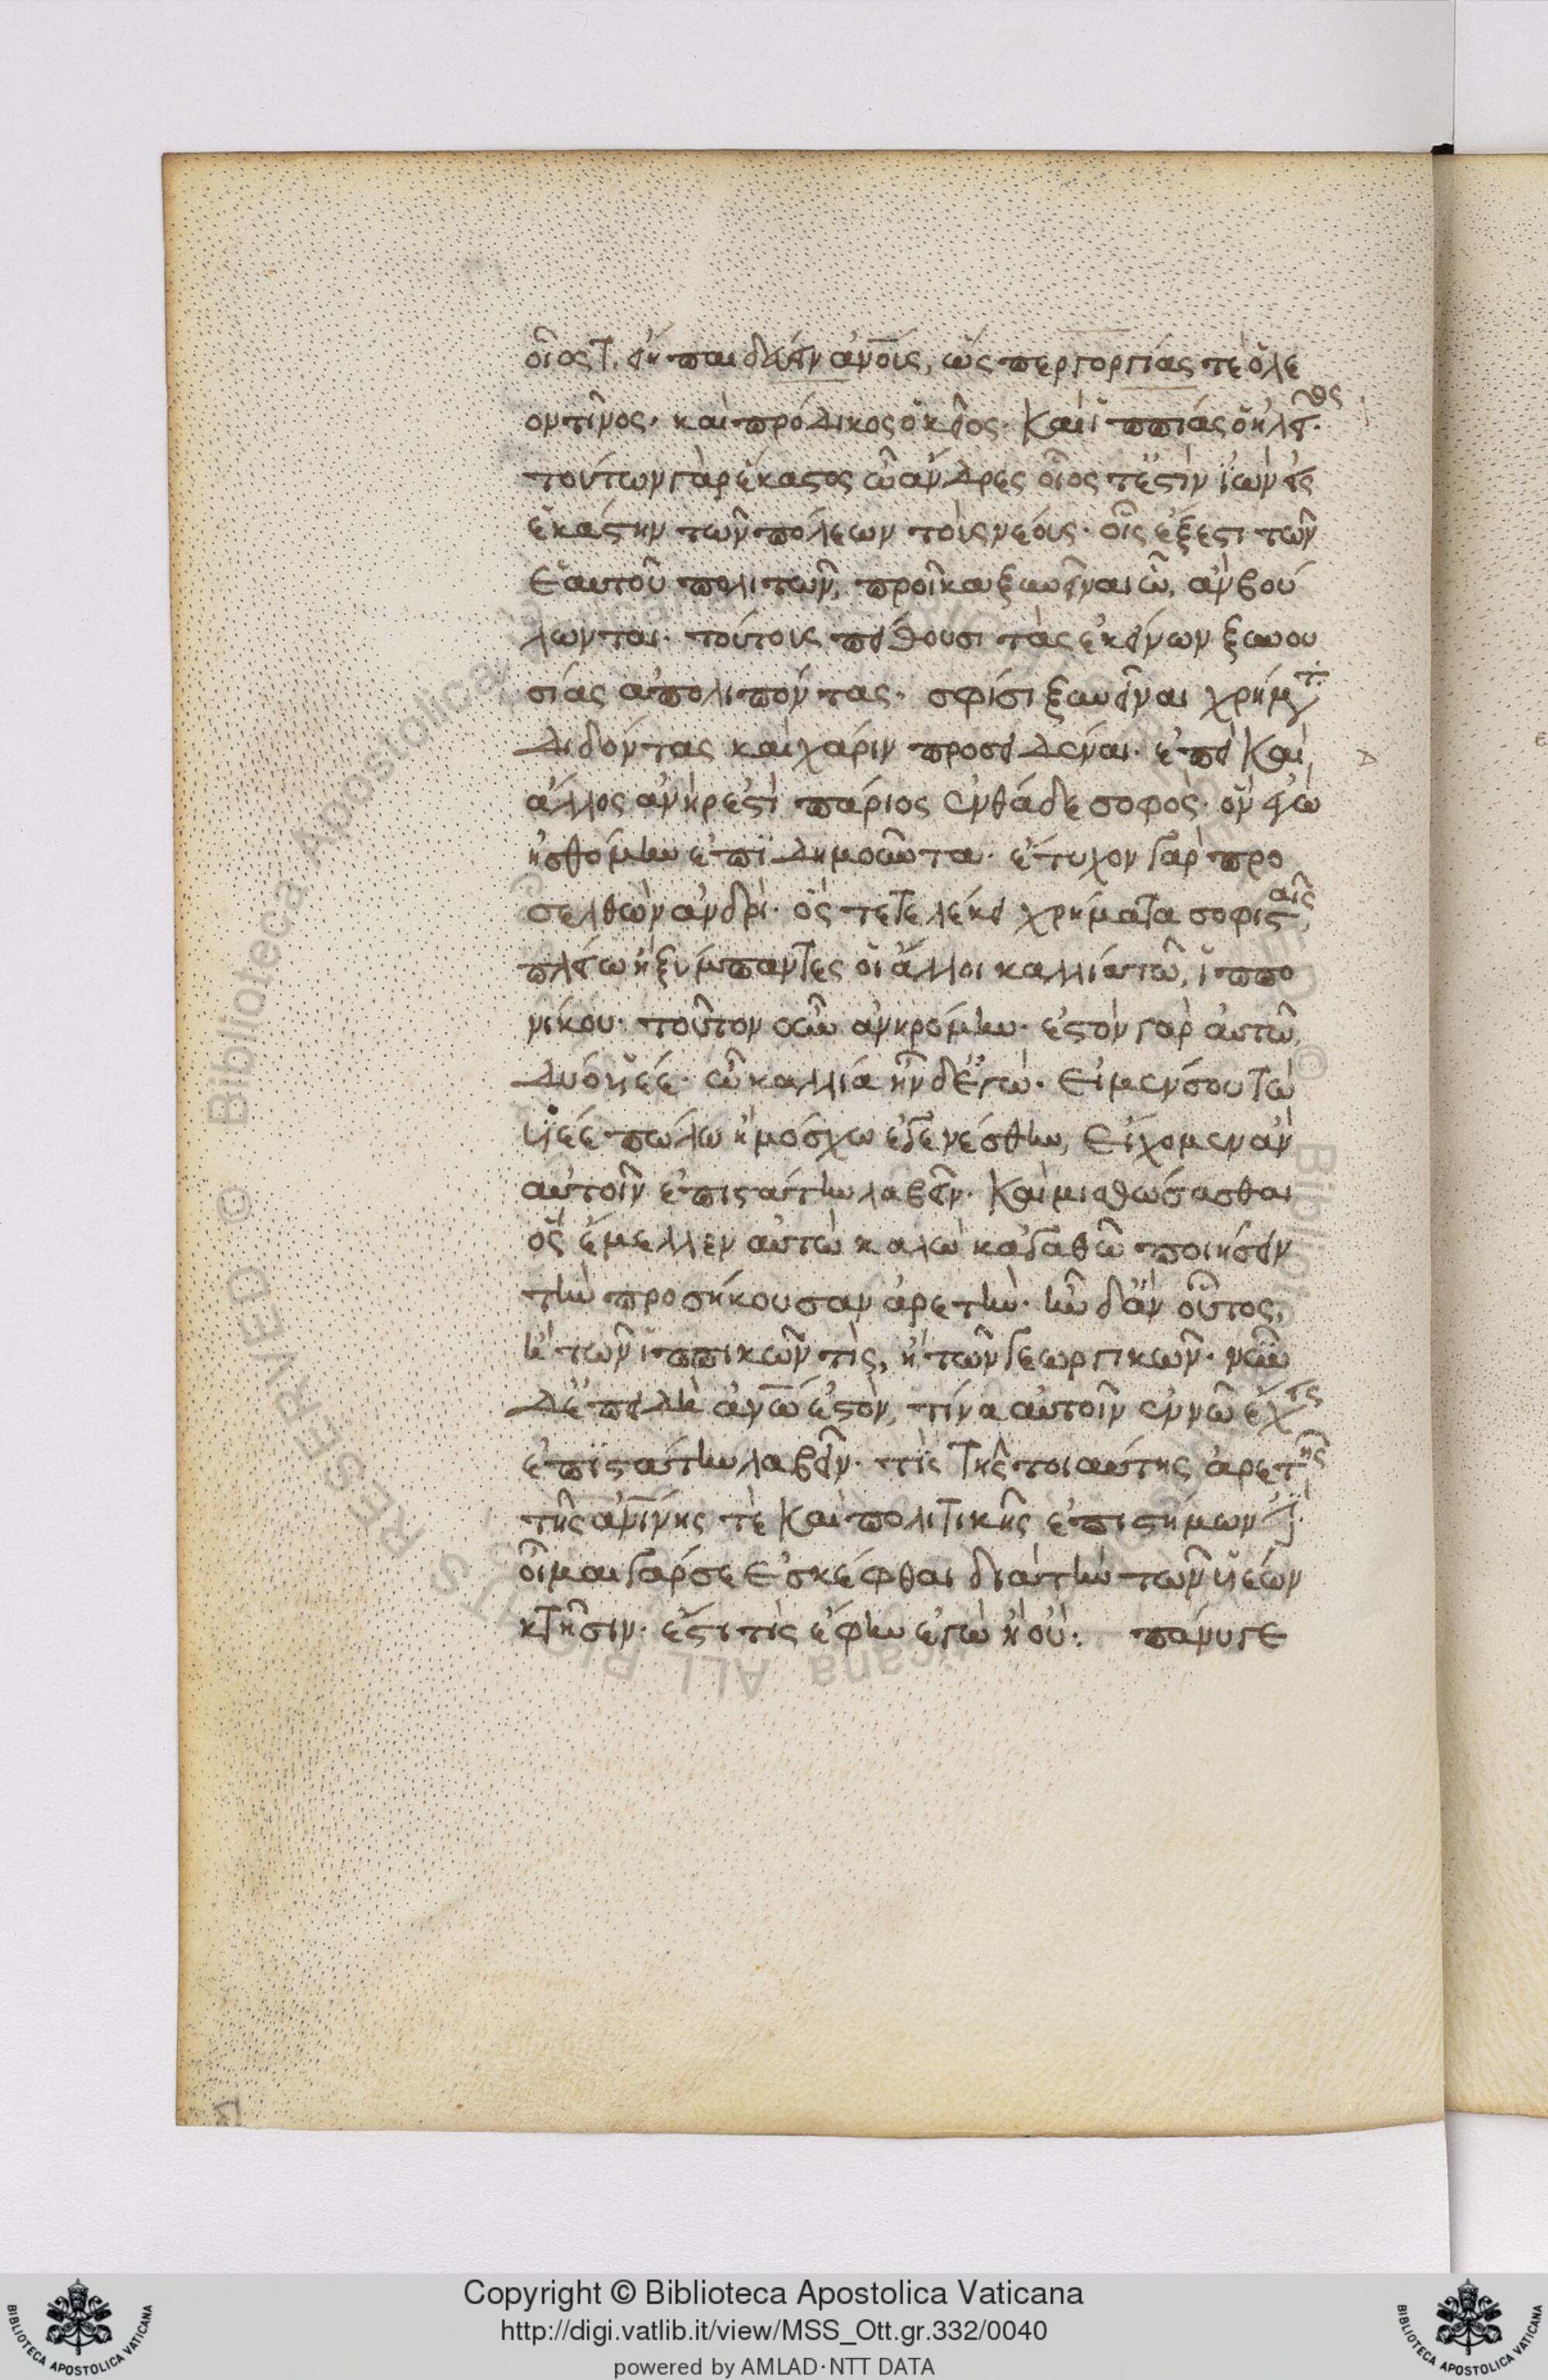 οἷός τ' εἴη παιδεύειν ἀν̅ο̅ις, ὥσπερ γοργίας τὲ ὁ λε
οντῖνος· καὶ πρόδικος ὁ κεῖος· Καὶ ἱππίας ὁ ἠλεῖος·
τούτων γὰρ ἕκαστος ὦ ἄνδρες οἷός τ' ἐστὶν ἰὼν εἰς
ἑκάστην τῶν πόλεων τοῖς νέοις· οἷς ἔξεστι τῶν
ἑαυτοῦ πολιτῶν, προῖκα ξυνεῖναι ὧ, ἂν βού
λωνται· τούτους πείθουσι τὰς ἐκείνων ξυνου
σίας ἀπολιπόντας· σφίσι ξυνεῖναι χρήματ
διδόντας καὶ χάριν προσειδέναι· ἐπεὶ Καὶ
ἄλλος ἀνήρ ἐστὶ πάριος ἐνθάδε σοφὸς· ὃν ἐγὼ
ἠσθόμην ἐπιδημοῦντα· ἔτυχον γὰρ προ
σελθὼν ἀνδρὶ· ὃς τετέλεκε χρήματα σοφισταῖς
πλείω ἢ ξύμπαντες οἱ ἄλλοι καλλία τῶ, ἱππο
νίκου· τοῦτον οὖν ἀνηρόμην· ἐστὸν γὰρ αὐτῶ,
δύο ὑιέε· ὦ καλλία ἦν δ' ἐγὼ· Εἰ μέν σου τὼ
ὑιέε πώλω ἢ μόσχω ἐγενέσθην, Εἴχομεν ἂν
αὐτοῖν ἐπιστάτην λαβεῖν· Καὶ μισθώσασθαι
ὃς ἔμελλεν αὐτὼ καλὼ κἀγαθὼ ποιήσειν
τὴν προσήκουσαν ἀρετὴν· ἦν δ' ἂν οὗτος,
ἢ τῶν ἱππικῶν τὶς, ἢ τῶν γεωργικῶν· νῦν
δ' ἐπειδὴ ἀν̅ω̅ ἐστὸν, τίνα αὐτοῖν ἐν νῶ ἔχεις
ἐπιστάτην λαβεῖν· τίς τῆς τοιαύτης ἀρετῆς
τῆς ἀν̅ίνης τὲ Καὶ πολιτικῆς ἐπιστήμων ἐστί·
οἶμαι γάρ σε ἐσκέφθαι διὰ τὴν τῶν ὑιέων
κτῆσιν· ἔστι τὶς ἔφην ἐγὼ ἢ οὔ: πάνυ γε